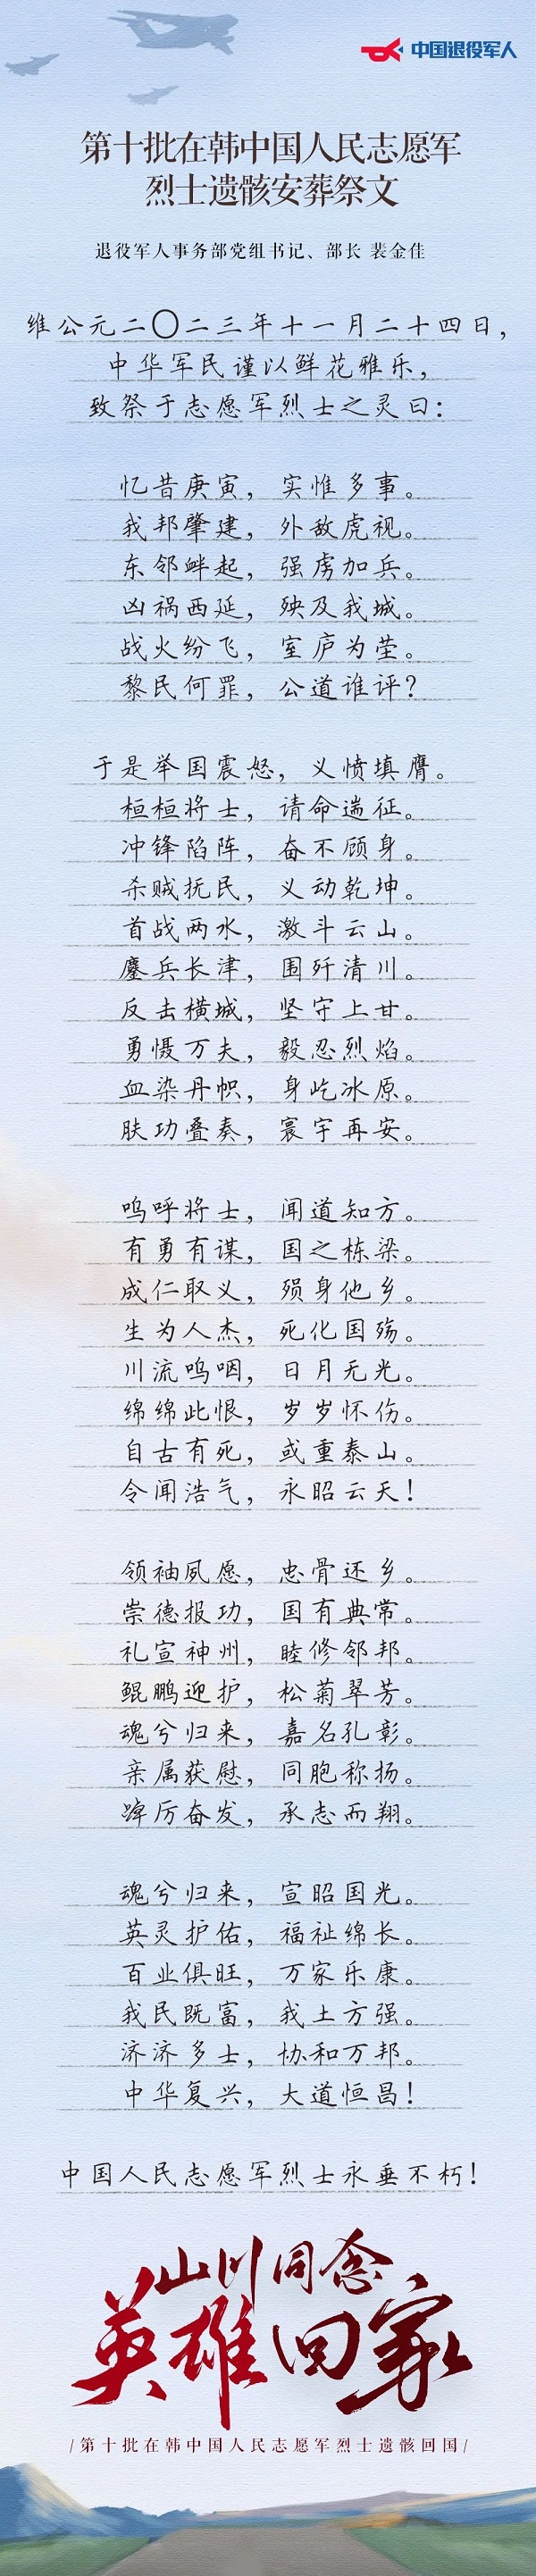 中国退役军人
第十批在韩中国人民志愿军
烈士遗骸安葬祭文
退役军人事务部党组书记、部长 裴金佳
维公元二〇二三年十一月二十四日，
中华军民谨以鲜花雅乐，
致祭于志愿军烈士之灵曰：
忆昔庚寅，实惟多事。
我邦肇建，外敌虎视。
东邻衅起，强虏加兵。
凶祸西延，殃及我城。
战火纷飞，室庐为茔。
黎民何罪，公道谁评？
于是举国震怒，义愤填膺。
桓桓将士，请命遄征。
冲锋陷阵，奋不顾身。
杀贼抚民，义动乾坤。
首战两水，激斗云山。
鏖兵长津，围歼清川。
反击横城，坚守上甘。
勇慑万夫，毅忍烈焰。
血染丹帜，身屹冰原。
肤功叠奏，寰宇再安。
呜呼将士，闻道知方。
有勇有谋，国之栋梁。
成仁取义，殒身他乡。
生为人杰，死化国殇。
川流呜咽，日月无光。
绵绵此恨，岁岁怀伤。
自古有死，或重泰山。
令闻浩气，永昭云天！
领袖夙愿，忠骨还乡。
崇德报功，国有典常。
礼宣神州，睦修邻邦。
鲲鹏迎护，松菊翠芳。
魂兮归来，嘉名孔彰。
亲属获慰，同胞称扬。
踔厉奋发，承志而翔。
魂兮归来，宣昭国光。
英灵护佑，福祉绵长。
百业俱旺，万家乐康。
我民既富，我土方强。
济济多士，协和万邦。
中华复兴，大道恒昌！
中国人民志愿军烈士永垂不朽！
山川同念
英雄回家
/第十批在韩中国人民志愿军烈士遗骸回国/